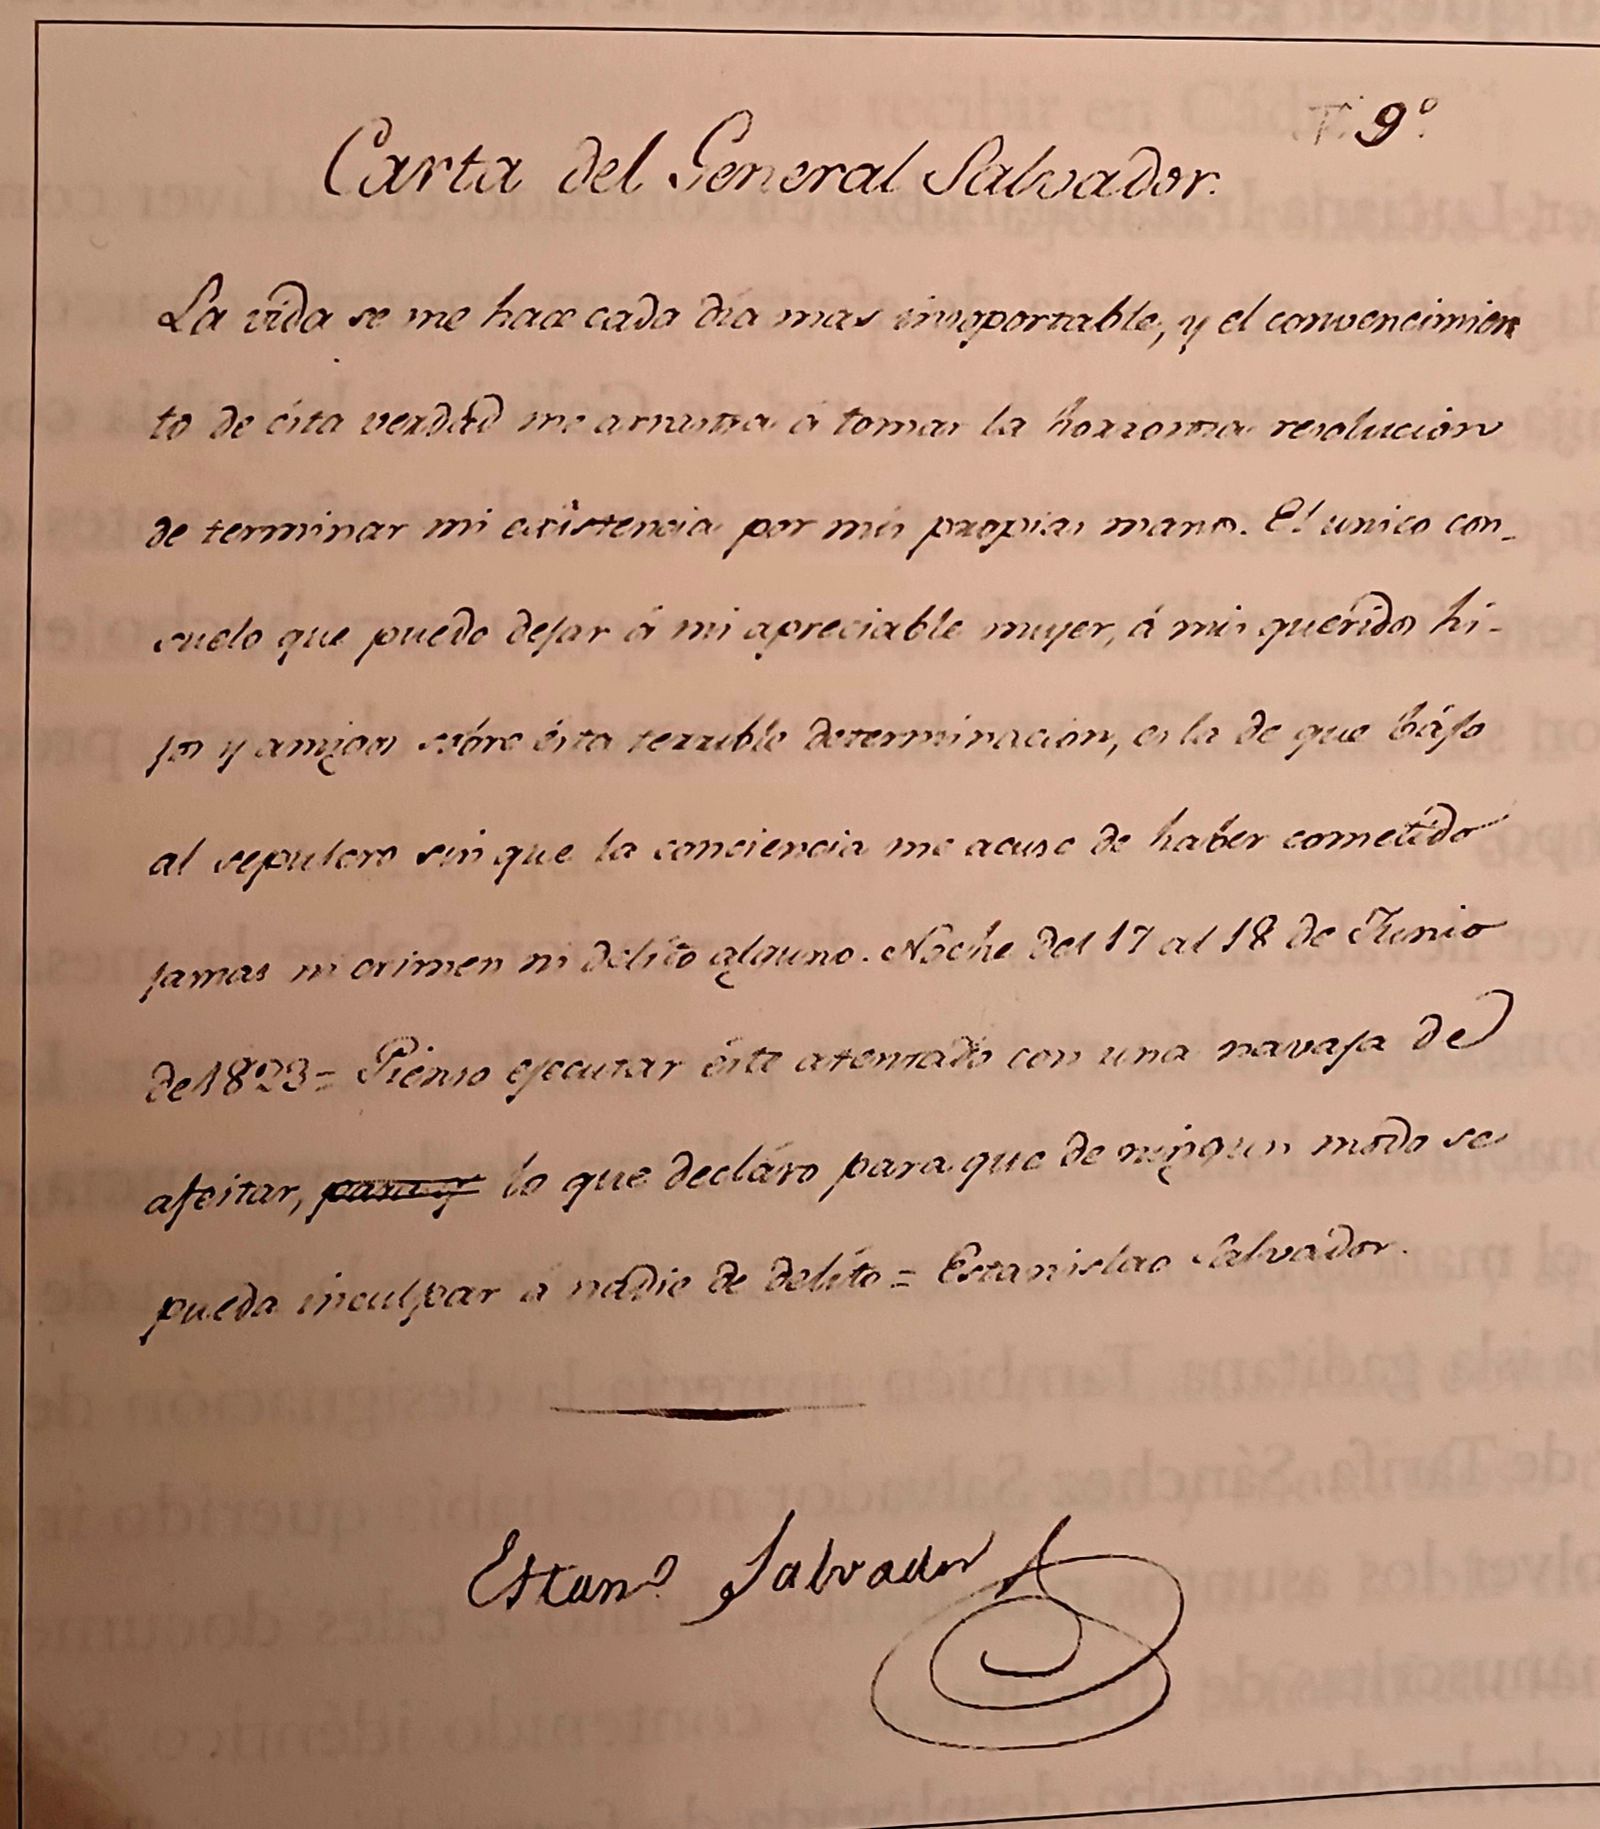 T. 9º
Carta del General Salvador.
La vida se me hace cada día mas insoportable, y el convencimien
to de ésta verdad me arrastra á tomar la horrorosa resolucion
de terminar mi existencia por mis propias manos. El unico con-
suelo que puedo dejar á mi apreciable muger, á mis queridos hi-
jos y amigos sóbre ésta terrible determinacion, es la de que bájo
al sepulcro sin que la conciencia me acuse de haber cometido
jamas ni crimen ni delito alguno. Noche del 17 al 18 de Junio
de 1823 = Pienso ejecutar éste atentado con una navaja de
afeitar, para q lo que decláro para que de ningun modo se
pueda inculpar á nadie de delito = Estanislao Salvador.
Estanº Salvador